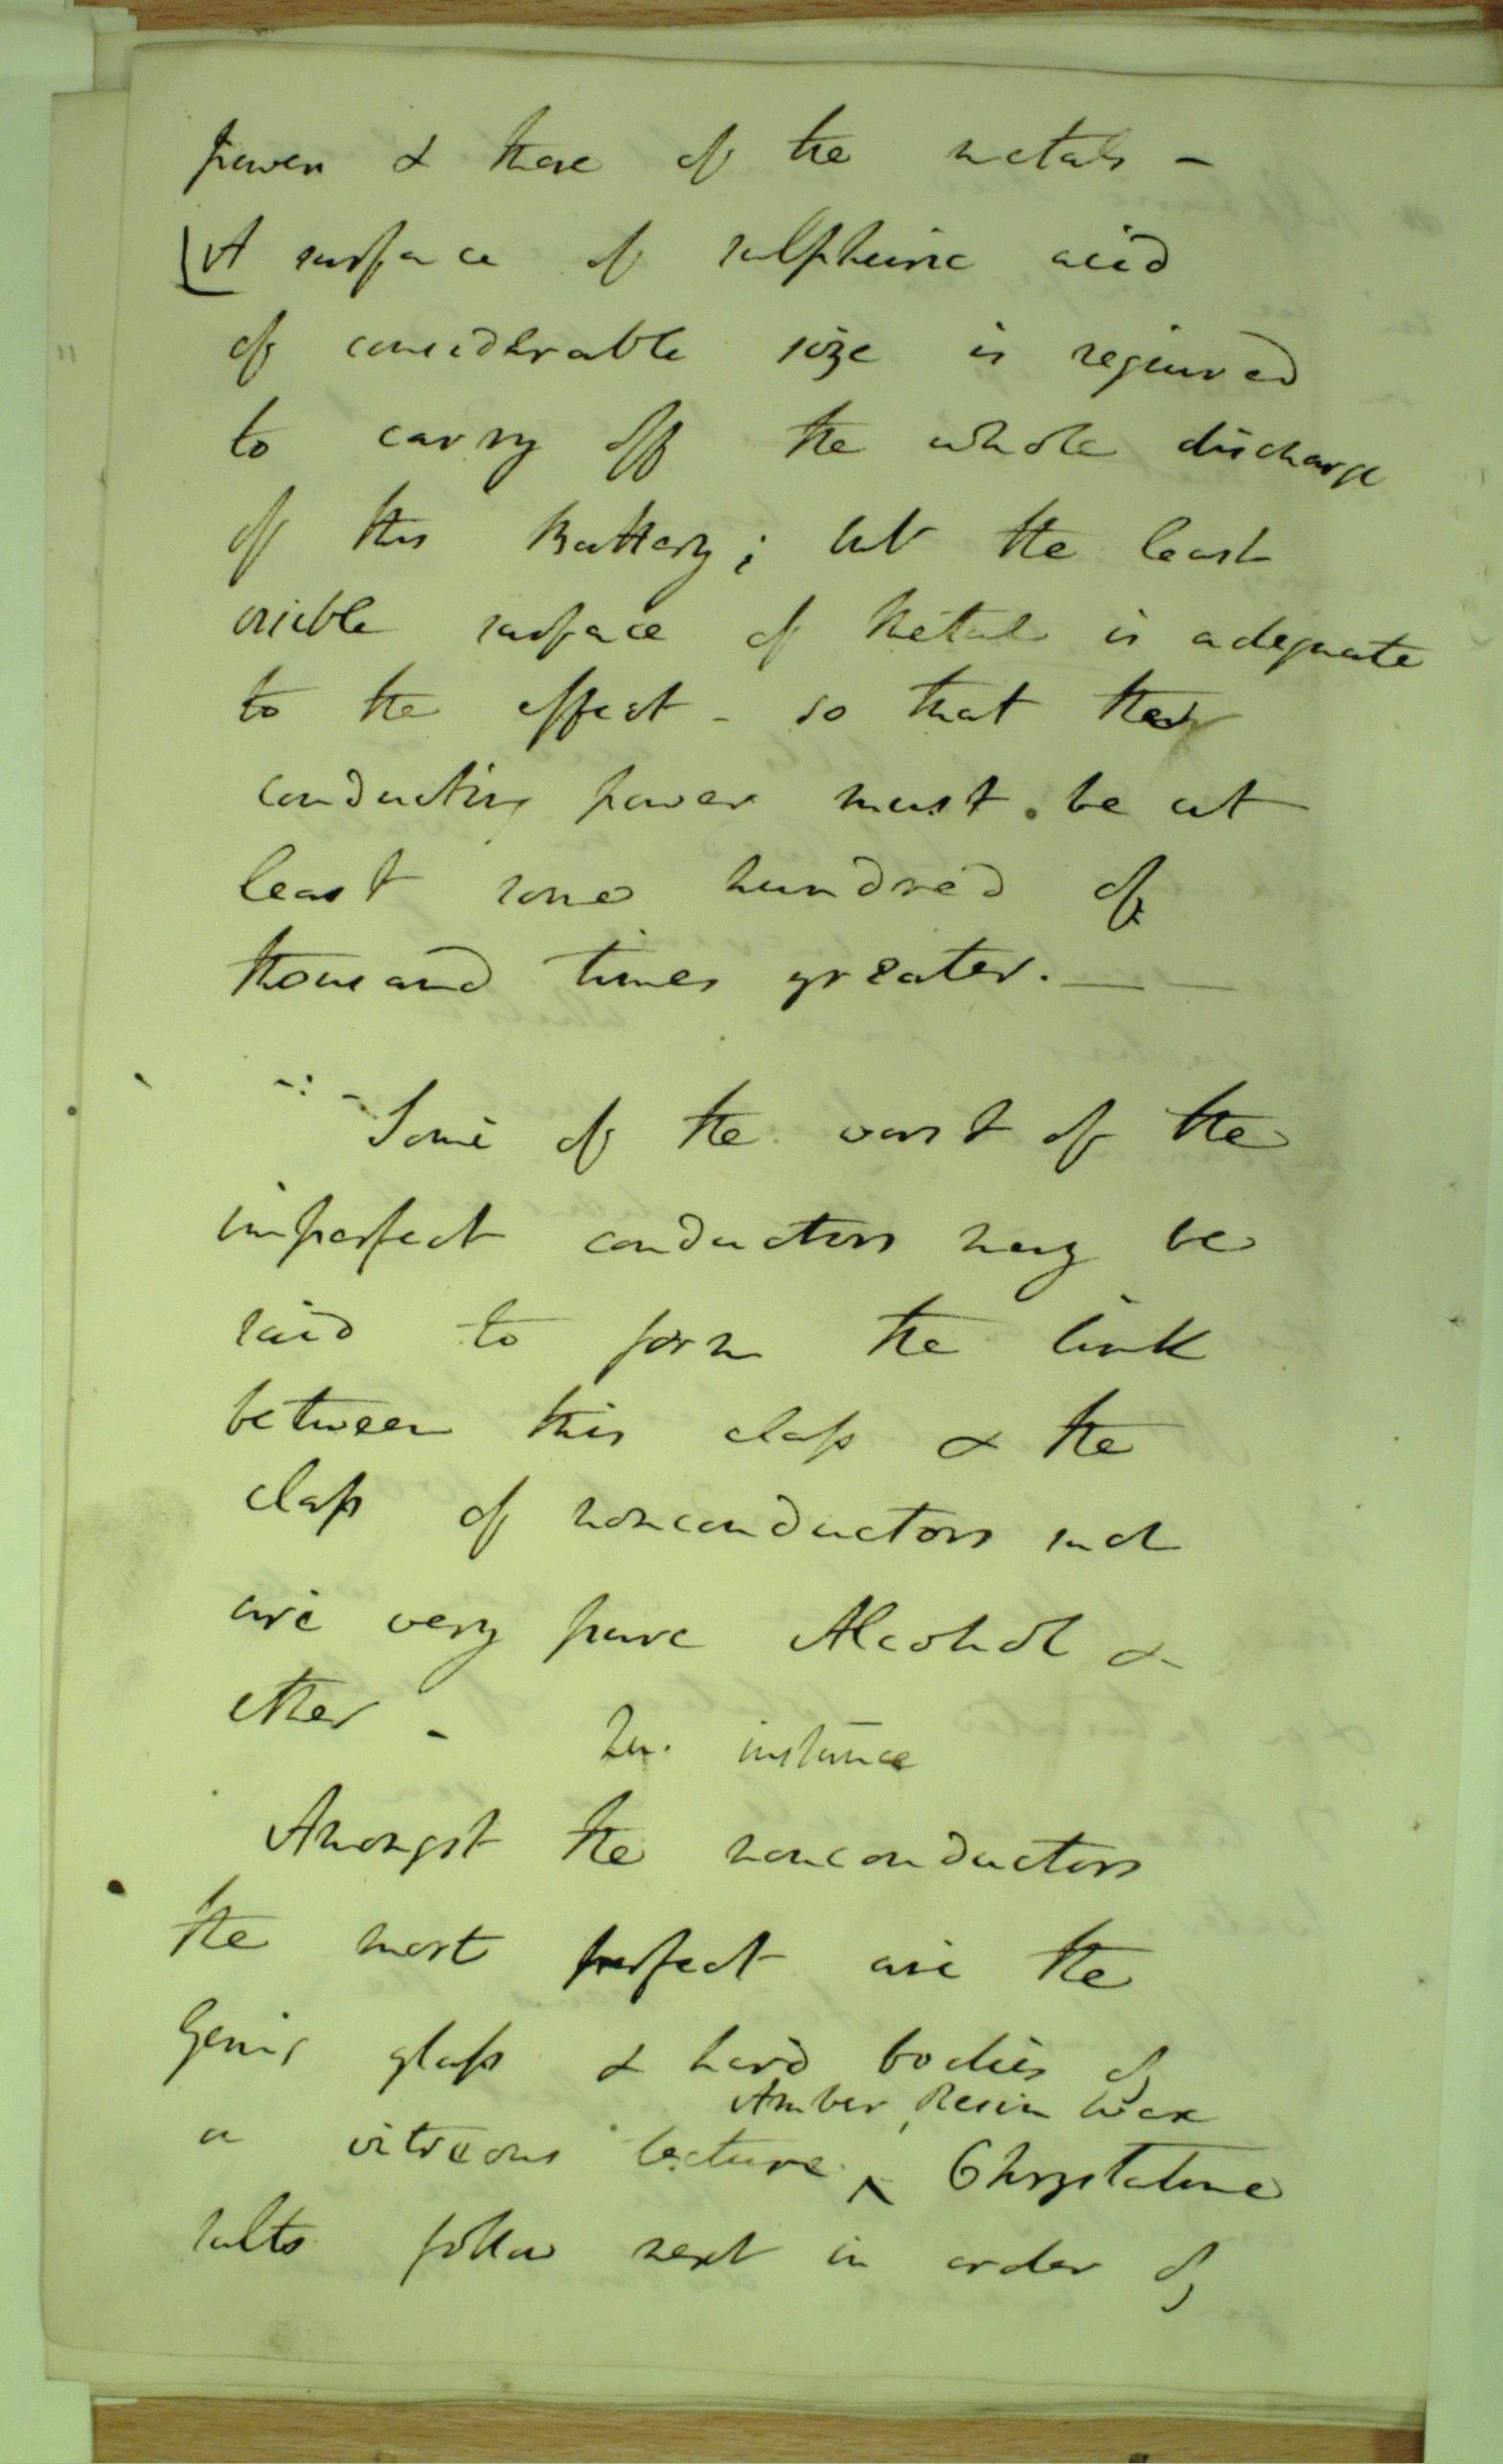 power & those of the metals -
A surface of sulphuric acid
of considerable size is required
to carry off the whole discharge
of this Battery; but the least
visible surface of Metal is adequate
to the effect - so that their
conducting power must be at
least some hundred of
thousand times greater. — —
Some of the worst of the
imperfect conductors may be
said to form the link
between this class & the
class of nonconductors such
are very pure Alcohol &
ether -
instance
Amongst the nonconductors
the most perfect are the
Gems glass & hard bodies of
Amber, Resin Wax
a vitreous texture ^ Chrystaline
salts follow next in order of